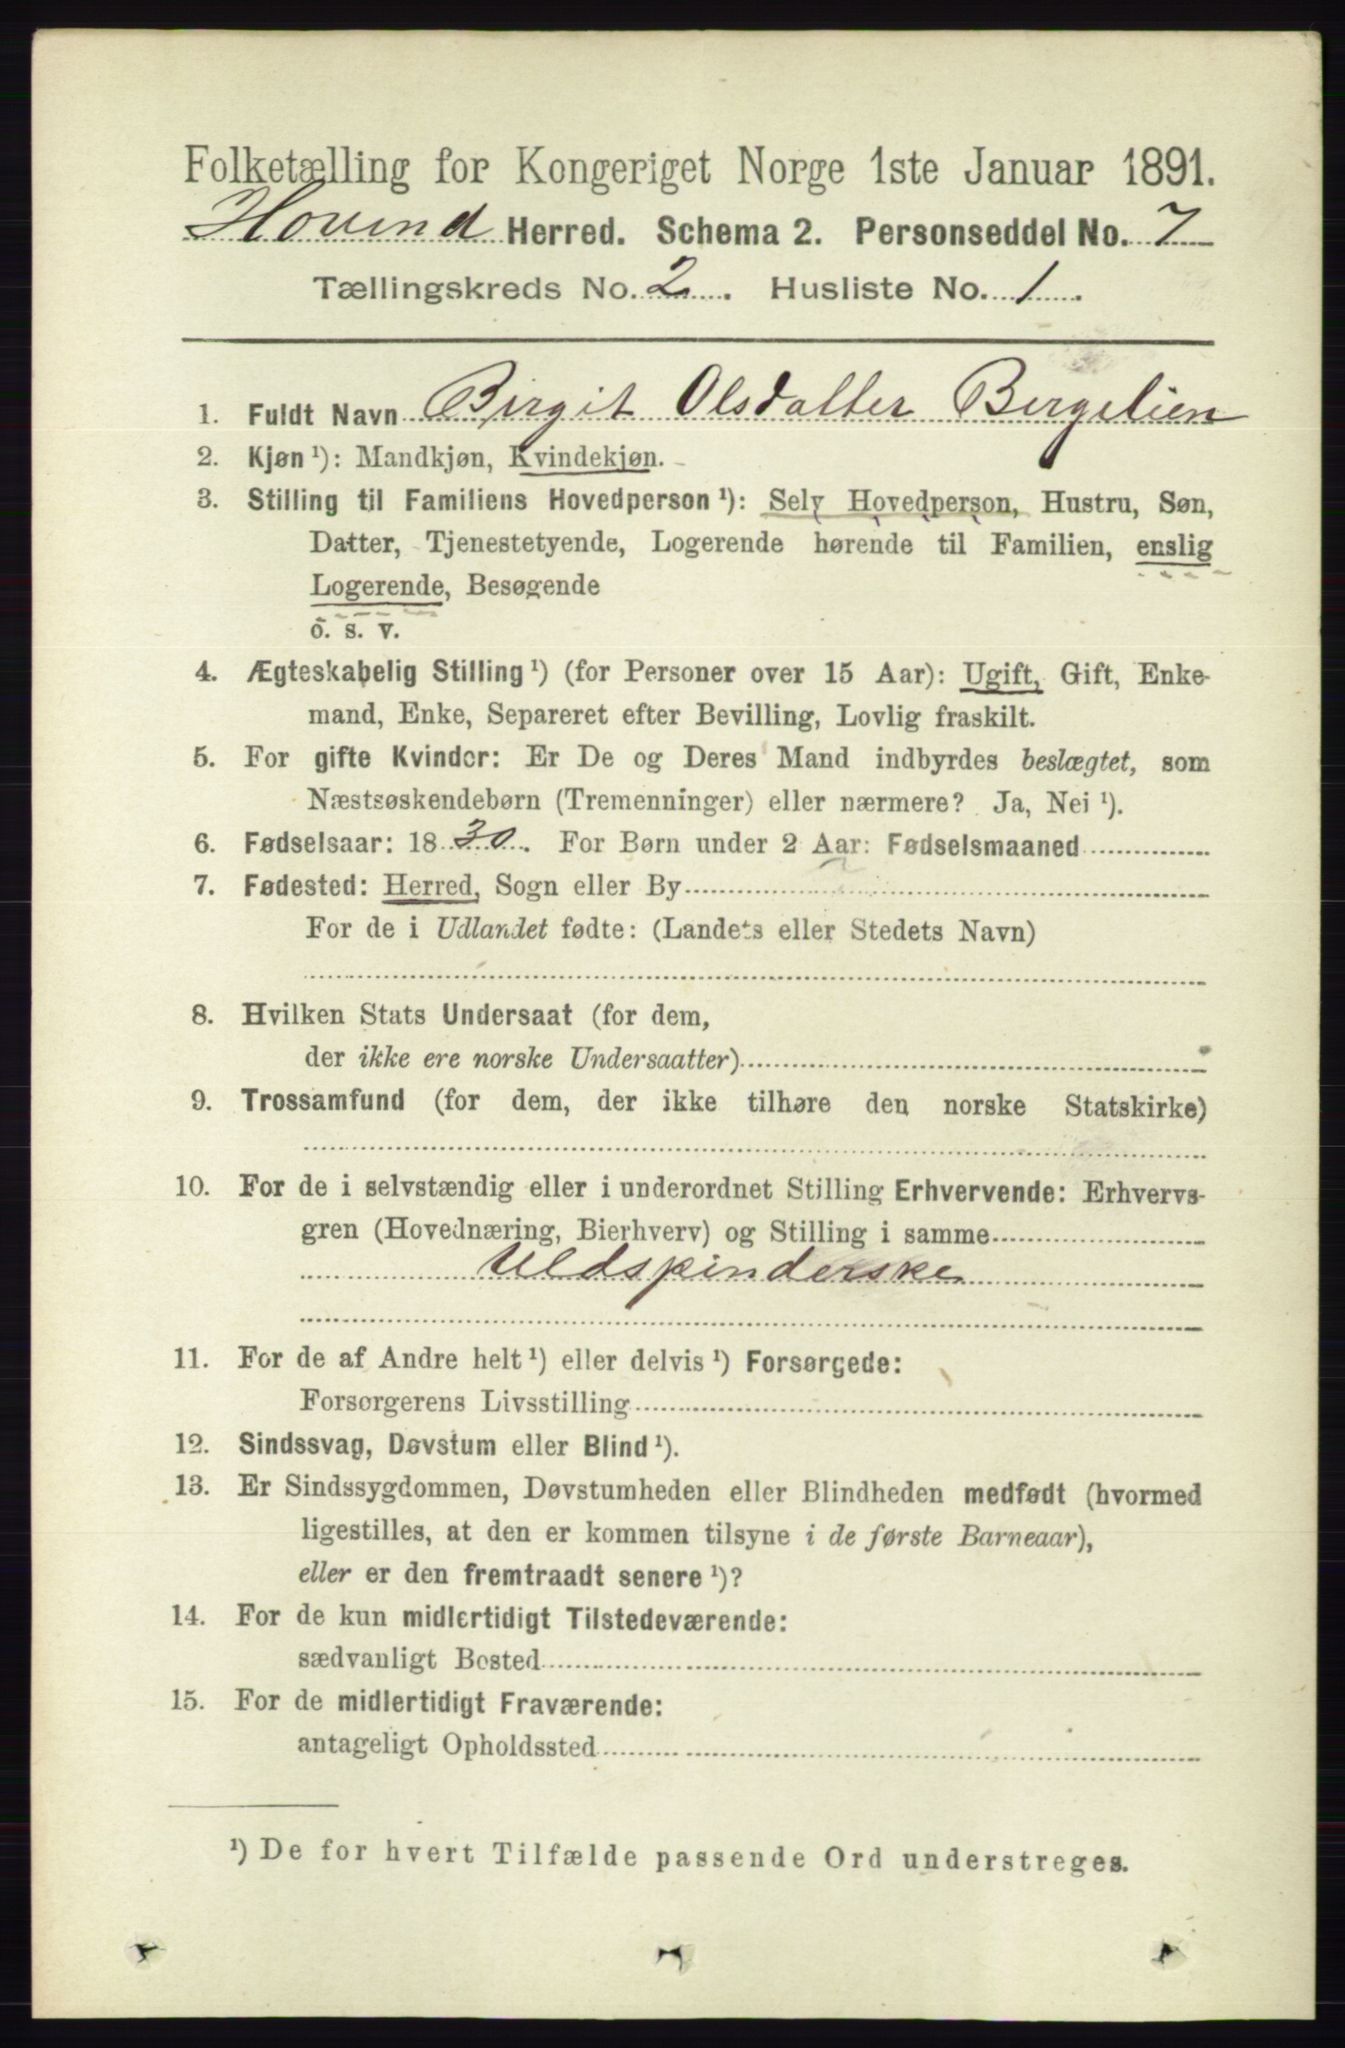 Folketælling for Kongeriget Norge 1ste Januar 1891.
Hovind Herred. Schema 2. Personseddel No. 7
Tællingskreds No. 2. Husliste No. 1.
1. Fuldt Navn Birgit Olsdatter Bergelien
2. Kjøn¹): Mandkjøn, Kvindekjøn.
3. Stilling til Familiens Hovedperson¹): Selv Hovedperson, Hustru, Søn,
Datter, Tjenestetyende, Logerende hørende til Familien, enslig
Logerende, Besøgende
o. s. v.
4. Ægteskabelig Stilling¹) (for Personer over 15 Aar): Ugift, Gift, Enke-
mand, Enke, Separeret efter Bevilling, Lovlig fraskilt.
5. For gifte Kvinder: Er De og Deres Mand indbyrdes beslægtet, som
Næstsøskendebørn (Tremenninger) eller nærmere? Ja, Nei¹).
6. Fødselsaar: 1830. For Børn under 2 Aar: Fødselsmaaned
7. Fødested: Herred, Sogn eller By
For de i Udlandet fødte: (Landets eller Stedets Navn)
8. Hvilken Stats Undersaat (for dem,
der ikke ere norske Undersaatter)
9. Trossamfund (for dem, der ikke tilhøre den norske Statskirke)
10. For de i selvstændig eller i underordnet Stilling Erhvervende: Erhvervs-
gren (Hovednæring, Bierhverv) og Stilling i samme
Uldspinderske
11. For de af Andre helt¹) eller delvis¹) Forsørgede:
Forsørgerens Livsstilling
12. Sindssvag, Døvstum eller Blind¹).
13. Er Sindssygdommen, Døvstumheden eller Blindheden medfødt (hvormed
ligestilles, at den er kommen tilsyne i de første Barneaar),
eller er den fremtraadt senere¹)?
14. For de kun midlertidigt Tilstedeværende:
sædvanligt Bosted
15. For de midlertidigt Fraværende:
antageligt Opholdssted
¹) De for hvert Tilfælde passende Ord understreges.